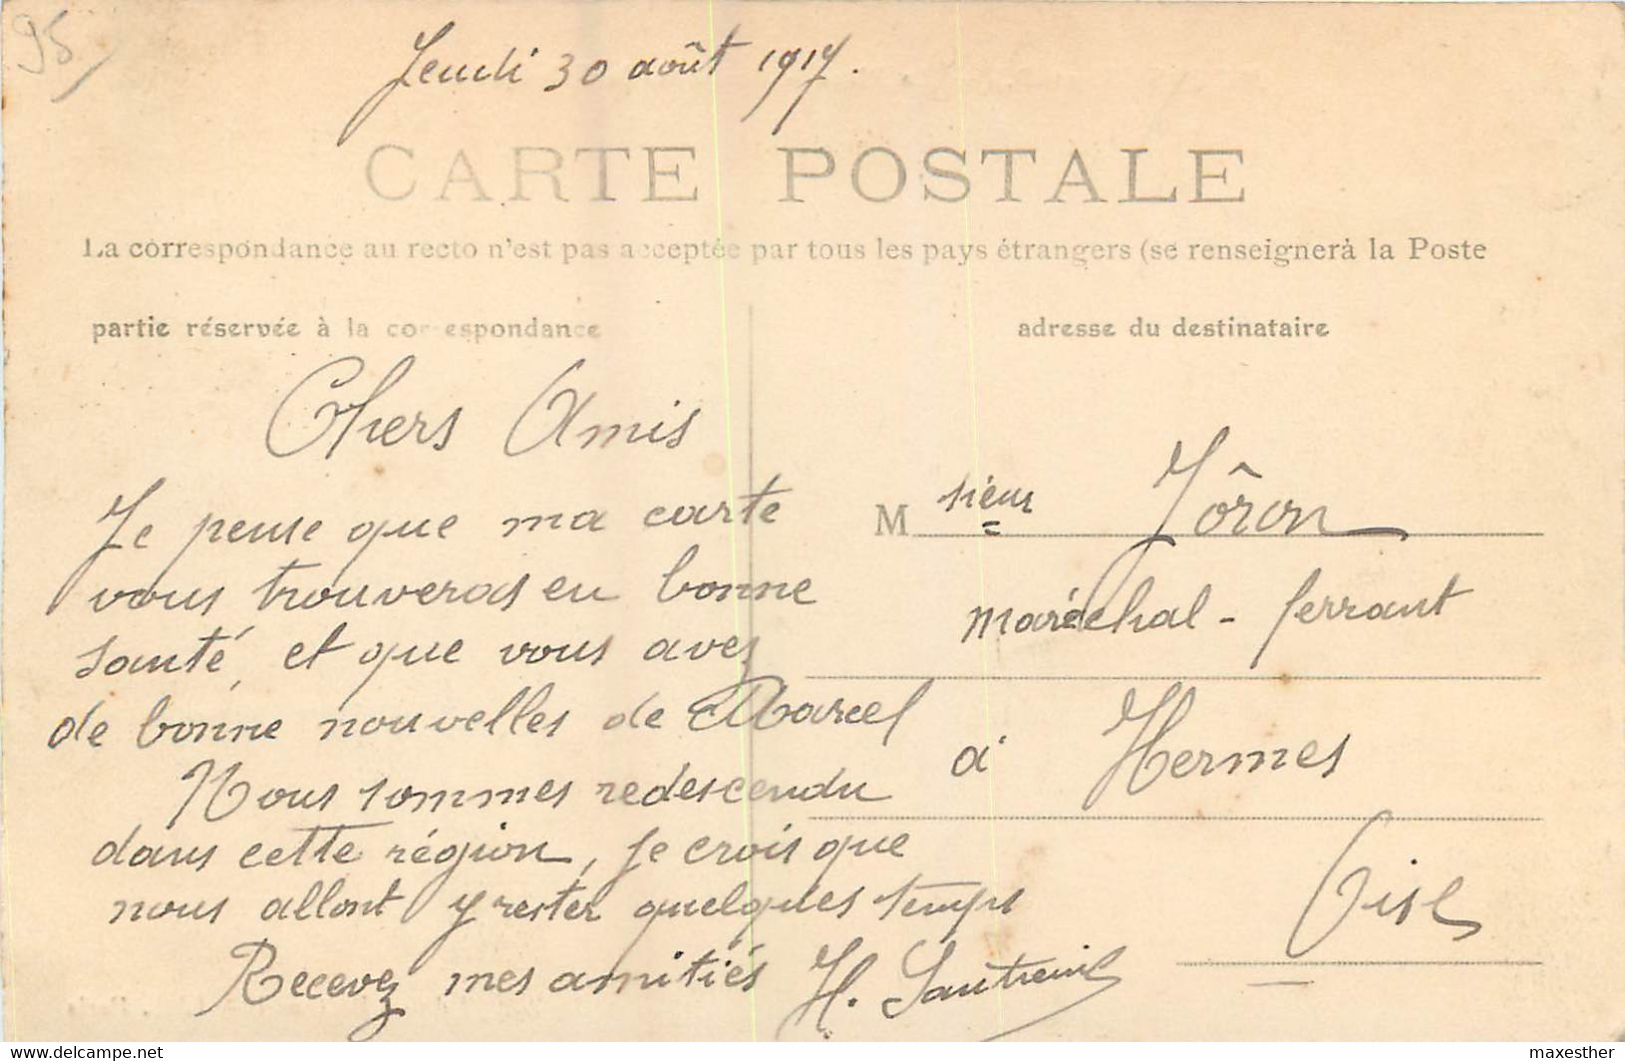 95
Jeudi 30 août 1917.
CARTE POSTALE
La correspondance au recto n'est pas acceptée par tous les pays étrangers (se renseignerà la Poste
partie réservée à la correspondance
adresse du destinataire
Chers Amis
Je pense que ma carte
vous trouveras en bonne
santé, et que vous avez
de bonne nouvelles de Marcel
Nous sommes redescendu
dans cette région, je crois que
nous allont y rester quelques temps
Recevez mes amitiés H. Sautreuil
Msieur Jôron
maréchal-ferrant
à Hermes
Oise
delcampe.net
maxesther